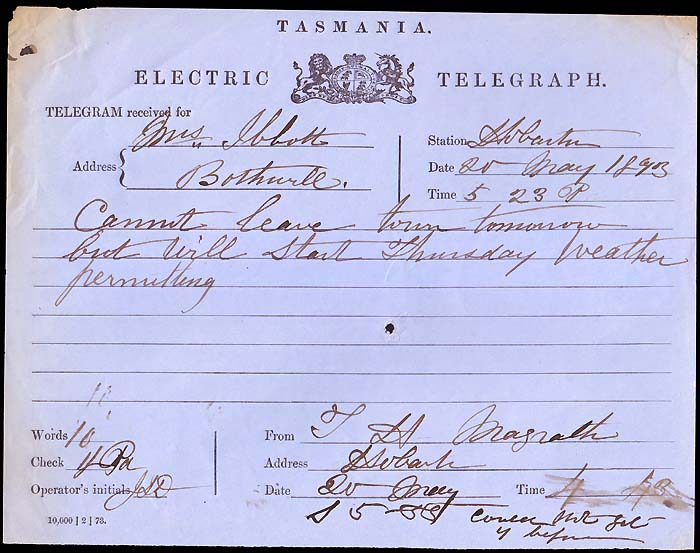 TASMANIA.
ELECTRIC TELEGRAPH.
TELEGRAM received for
Mrs Ibbott
Address Bothwell.
Station Hobart
Date 20 May 18
Time 5 23 P
Cannot leave town tomorrow
but will start Thursday weather
permitting
Words 10
Check
Operator's initials
10,000 | 2 | 73.
From T H Magrath
Address Hobart
Date 20 May Time 4 48
could not get
before